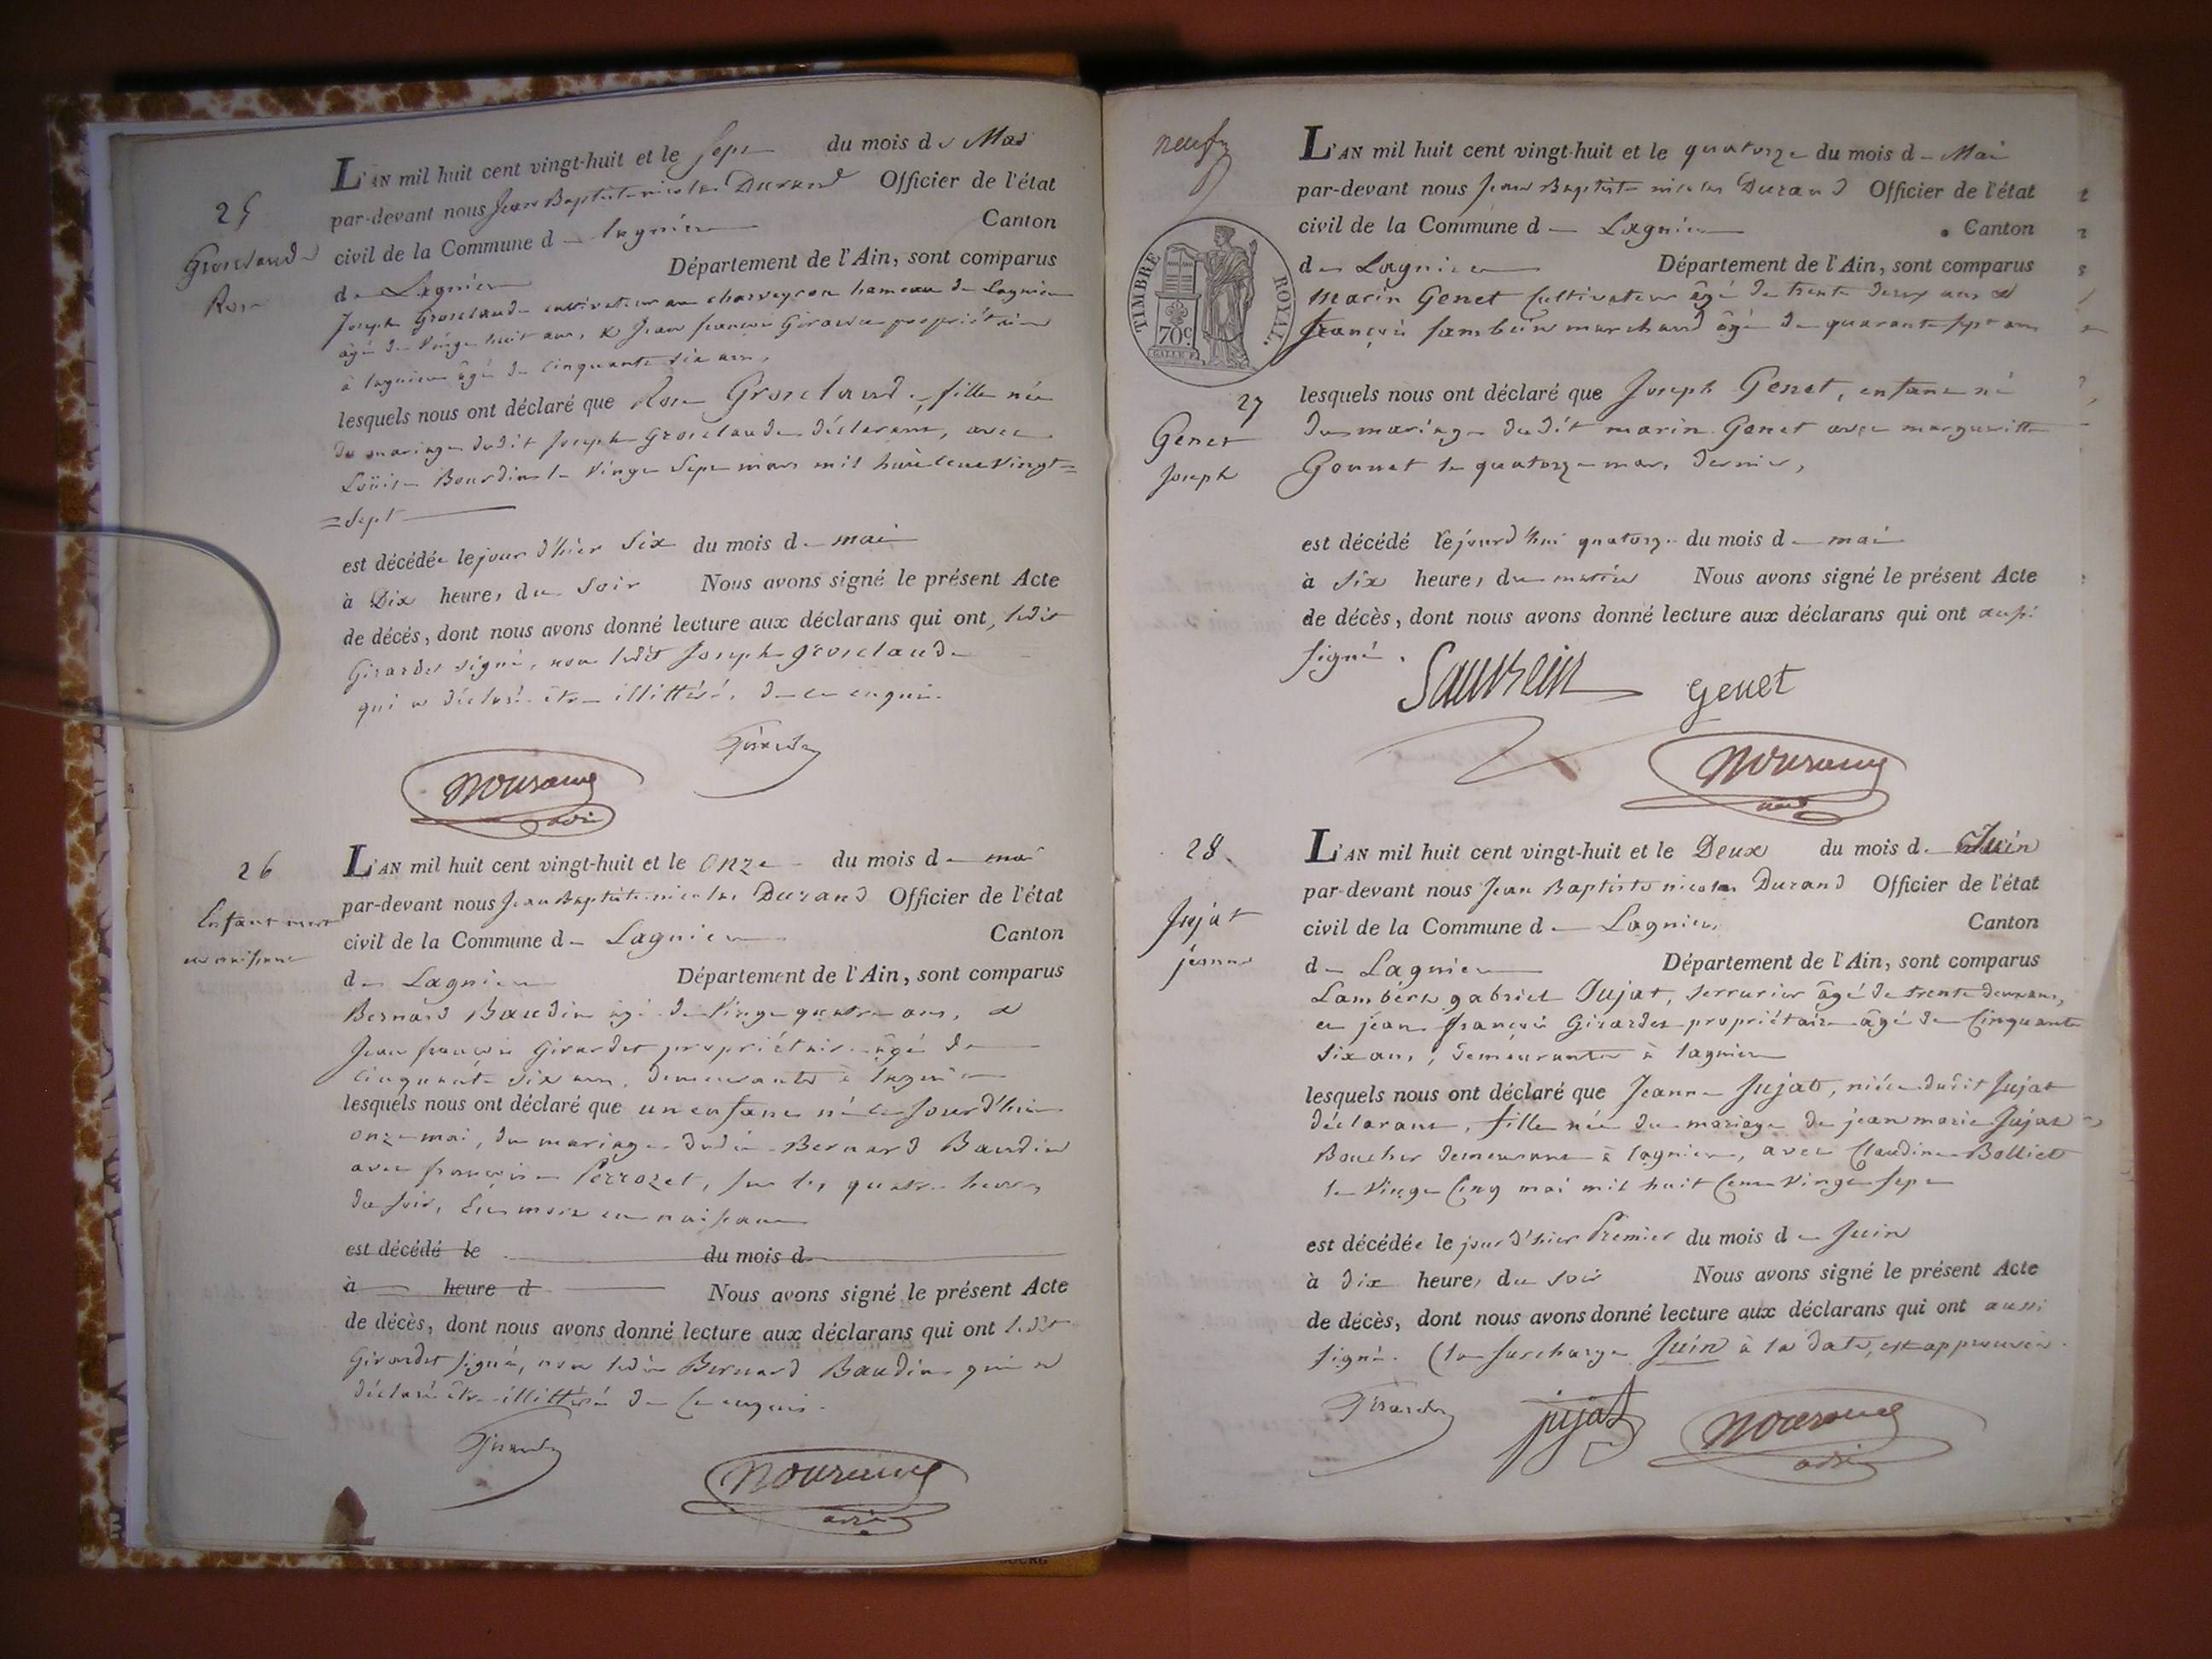 25
Grosclaude
Rose
L'AN mil huit cent vingt-huit et le sept du mois de Mai
par-devant nous Jean Baptiste nicolas Durand Officier de l'état
civil de la Commune de lagnieu Canton
de Lagnieu Département de l'Ain, sont comparus
Joseph Grosclaude cultivateur au charveyron hameau de Lagnieu
âgé de vingt huit ans, & Jean françois Girardet propriétaire
à lagnieu âgé de cinquante six ans,
lesquels nous ont déclaré que Rose Grosclaude, fille née
du mariage dudit Joseph Grosclaude déclarant, avec
Loüise Bourdin le vingt Sept mars mil huit cent vingt=
=sept
est décédée le jour d'hier six du mois de mai
à Dix heures du soir Nous avons signé le présent Acte
de décès, dont nous avons donné lecture aux déclarans qui ont, ledit
Girardet signé, non ledit Joseph grosclaude
qui a déclaré être illittéré, de ce enquis.
Girardet
26
Enfant mort
en naissant
L'AN mil huit cent vingt-huit et le onze du mois de mai
par-devant nous Jean Baptiste nicolas Durand Officier de l'état
civil de la Commune de Lagnieu Canton
de Lagnieu Département de l'Ain, sont comparus
Bernard Baudin âgé de vingt quatre ans, &
Jean françois Girardet propriétaire âgé de
cinquante six ans, demeurants à lagnieu
lesquels nous ont déclaré que un enfant né ce jourd'hui
onze mai, du mariage dudit Bernard Baudin
avec françoise Perrozet, sur les quatre heures
du soir, est mort en naissant
est décédé le du mois d
à heure d Nous avons signé le présent Acte
de décès, dont nous avons donné lecture aux déclarans qui ont ledit
Girardet signé, non ledit Bernard Baudin qui a
déclaré être illittéré de ce enquis.
Girardet
neuf
TIMBRE ROYAL.
70c.
27
Genet
Joseph
L'AN mil huit cent vingt-huit et le quatorze du mois de Mai
par-devant nous Jean Baptiste nicolas Durand Officier de l'état
civil de la Commune de Lagnieu Canton
de Lagnieu Département de l'Ain, sont comparus
Marin Genet cultivateur âgé de trente deux ans &
françois marchand âgé de quarante sept ans
lesquels nous ont déclaré que Joseph Genet, enfant né
du mariage dudit marin Genet avec margueritte
Gonnet le quatorze mars dernier,
est décédé cejourd'hui quatorze du mois de mai
à six heures du matin Nous avons signé le présent Acte
de décès, dont nous avons donné lecture aux déclarans qui ont aussi
signé.
genet
28
Jujat
jeanne
L'AN mil huit cent vingt-huit et le Deux du mois de Juin
par-devant nous Jean Baptiste nicolas Durand Officier de l'état
civil de la Commune de Lagnieu Canton
de Lagnieu Département de l'Ain, sont comparus
Lambért gabriel Jujat, serrurier âgé de trente deux ans,
et jean françois Girardet propriétaire âgé de cinquante
six ans, demeurants à lagnieu
lesquels nous ont déclaré que Jeanne Jujat, niéce dudit Jujat
déclarant, fille née du mariage de jean marie Jujat
Boucher demeurant à lagnieu, avec Claudine Bolliet
le vingt cinq mai mil huit cent vingt sept
est décédée le jour d'hier Premier du mois de Juin
à dix heures du soir Nous avons signé le présent Acte
de décès, dont nous avons donné lecture aux déclarans qui ont aussi
signé. (la surcharge Juin à la date, est approuvée.
Girardet jujat